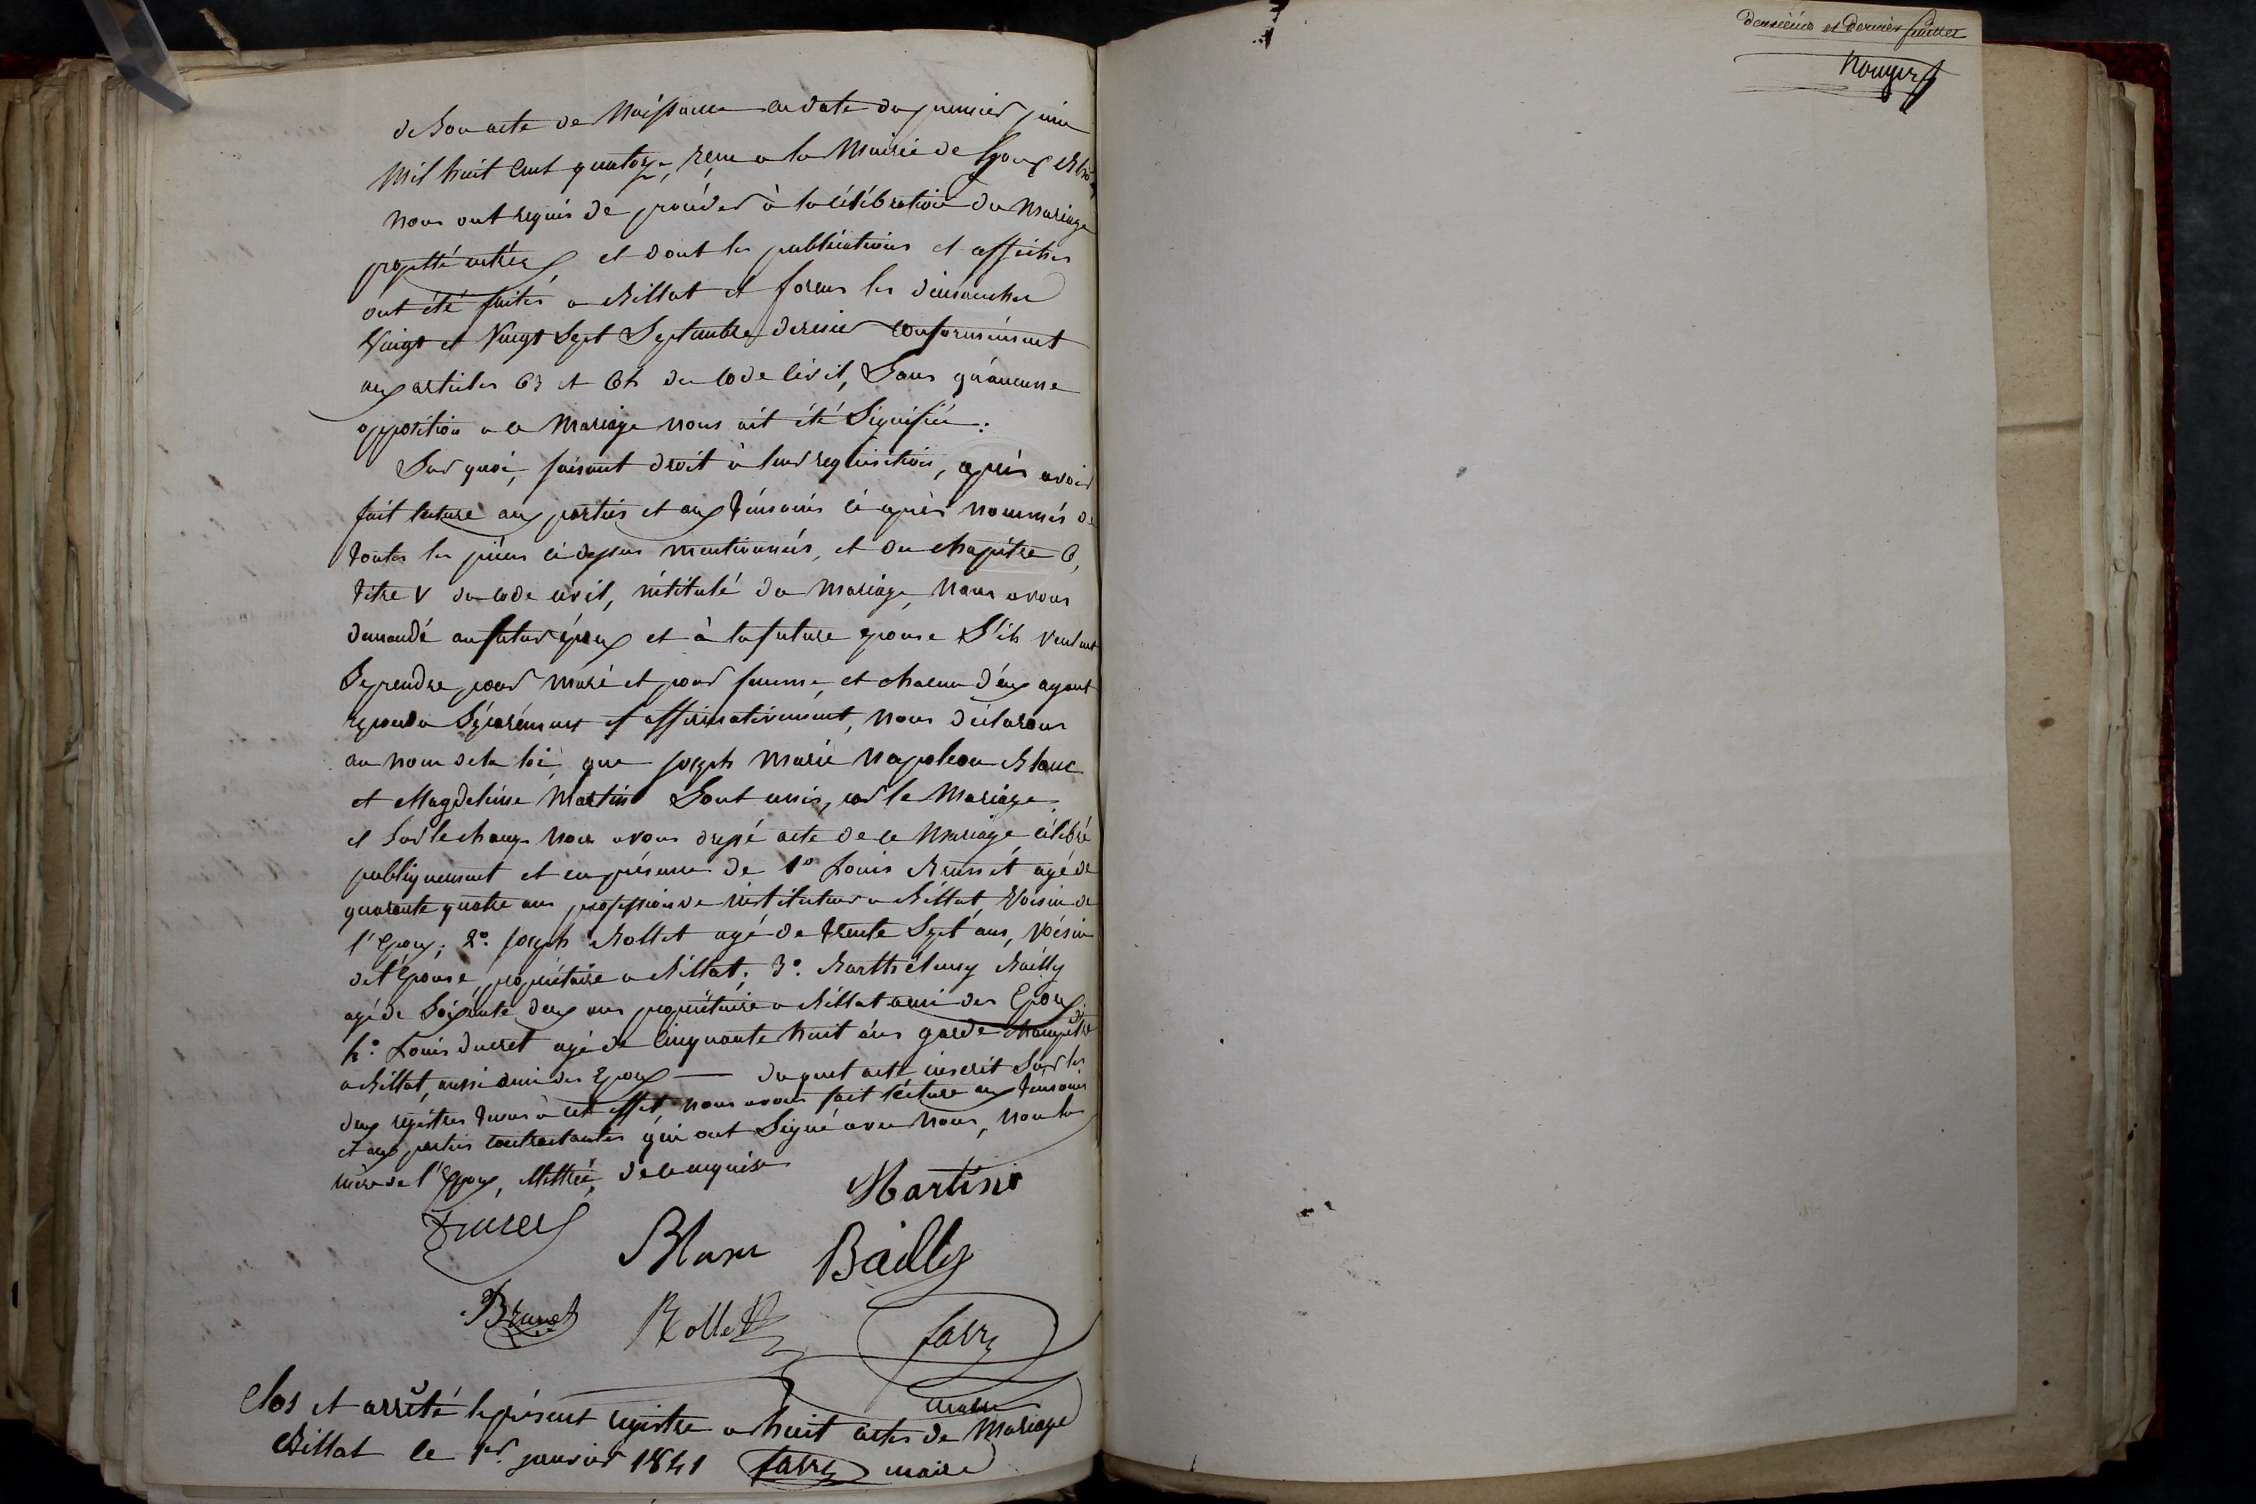 de Son acte de Naissance en date du premier juin
Mil huit Cent quatorze, reçu a la Mairie de
Nous ont requis de procéder à la célébration du Mariage
projetté entr'eux et dont les publications et affiches
ont été faites a Billat et forens les dimanches
Vingt et Vingt Sept Septembre dernier conformément
aux articles 63 et 64 du Code Civil, Sans qu'aucune
opposition a ce Mariage nous ait été Signifiée :
Sur quoi, faisant droit à leur requisition, après avoir
fait lecture aux parties et aux témoins ci après nommés de
toutes les pièces ci dessus mentionnées, et du chapitre 6,
titre V du Code civil, intitulé du Mariage, Nous avons
demandé au futur époux et à la future epouse S'ils veulent
Se prendre pour mari et pour femme, et chacun d'eux ayant
repondu Séparément et affirmativement, Nous déclarons
au nom de la loi, que joseph Marie Napoléon Blanc
et Magdeleine Martin Sont unis par le Mariage
et Sur le champ Nous avons dressé acte de ce Mariage célébré
publiquement et en présence de 1º Louis Brunet agé de
quarante quatre ans profession de instituteur a Billat, Voisin de
l'Epoux; 2º. joseph Rollet agé de trente Sept ans, Voisin
de l'Epouse, propriétaire a Billat; 3º. Barthélemy Bailly
agé de Soixante deux ans propriétaire a Billat ami des Epoux et
4º. Louis Ducret agé de Cinquante huit ans garde champêtre
a Billat, aussi ami des Epoux — duquel acte inscrit Sur les
deux régistres tenus à cet effet nous avons fait lecture aux témoins
et aux parties contractantes qui ont Signé avec Nous, Non la
mère de l'Epoux, illettrée, de ce enquise
Martin
Ducret
Blanc Bailly
Brunet Rollet favre
maire
Clos et arrêté le présent registre a huit actes de Mariage
Billat le 1er. janvier 1841 favre maire
deuxième et dernier feuillet